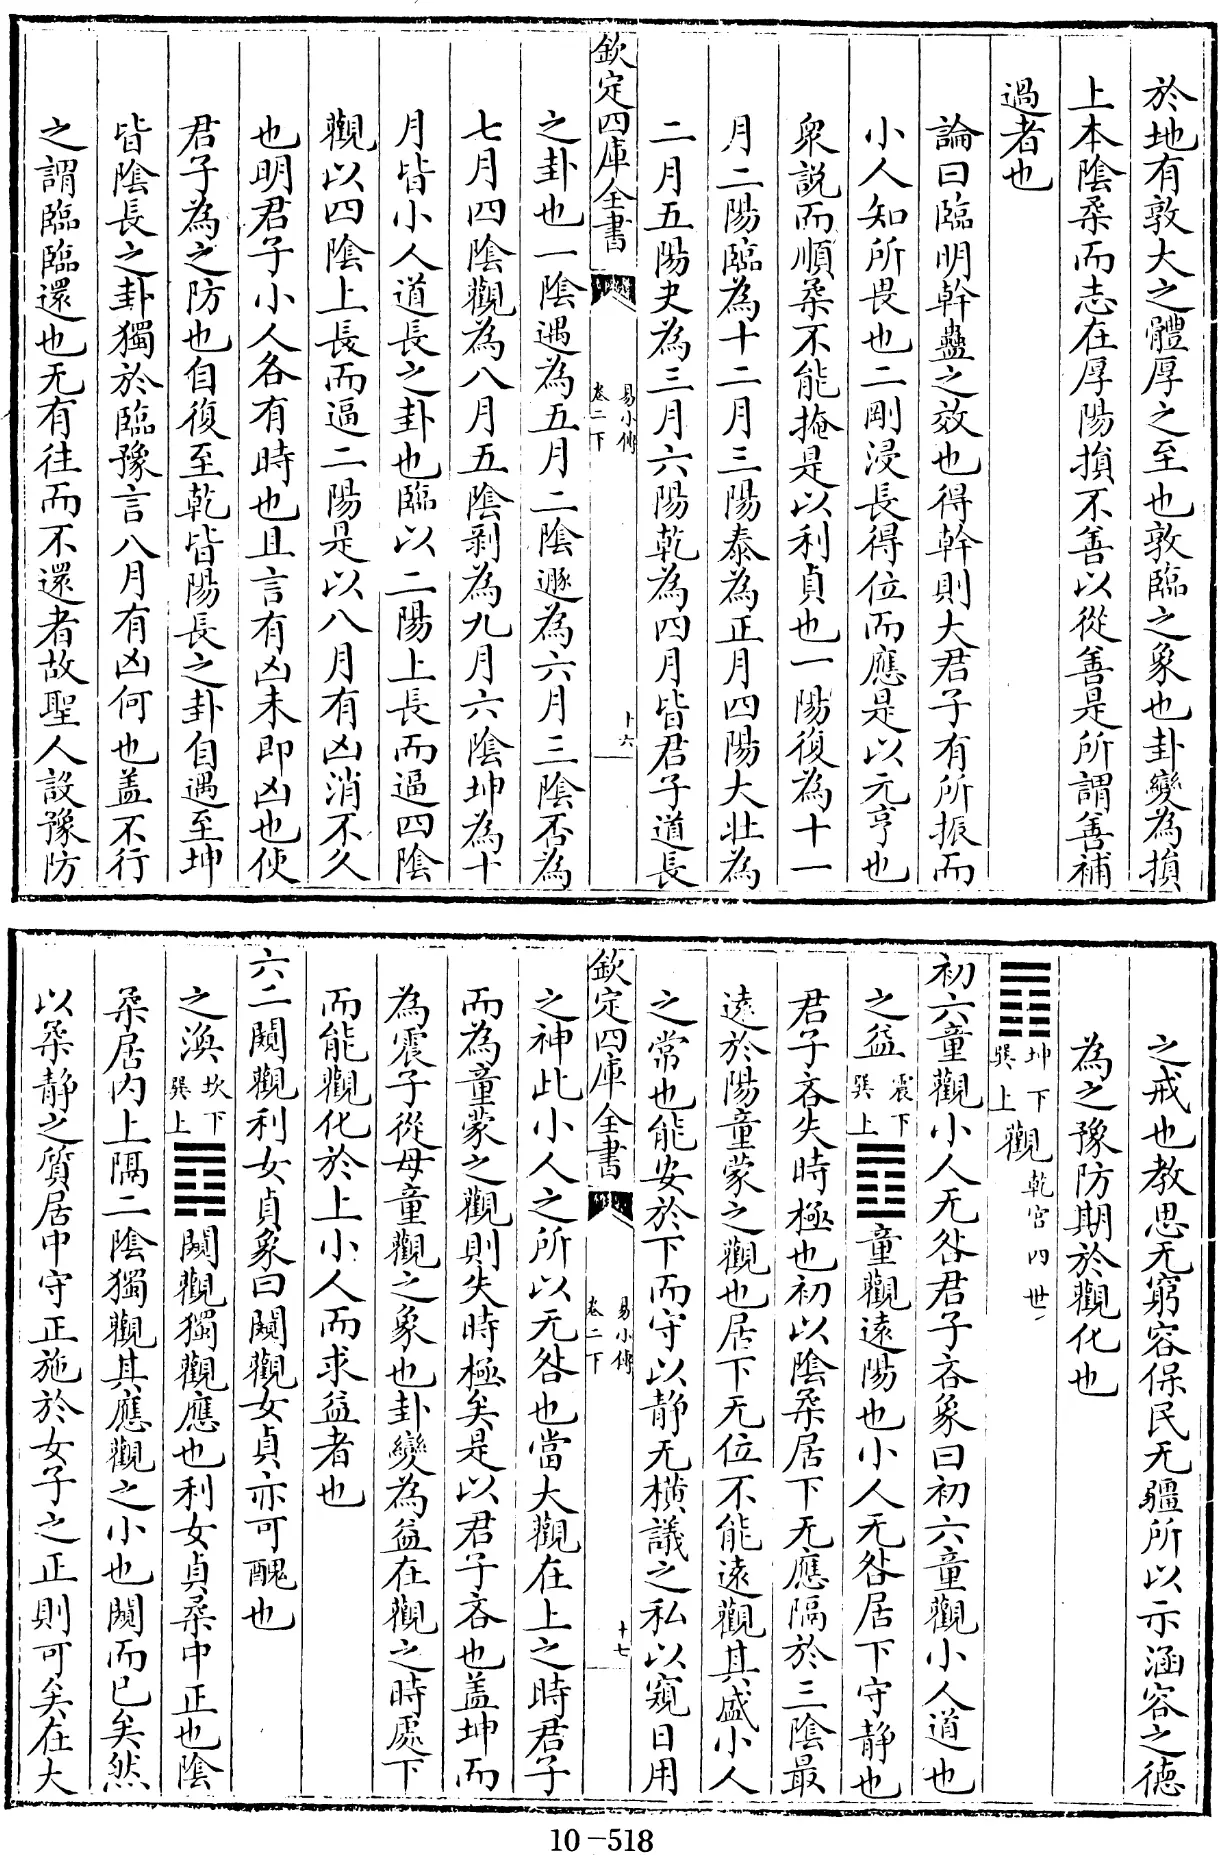 於地有敦大之體厚之至也敦臨之象也卦變為損
上本陰柔而志在厚陽損不善以從善是所謂善補
過者也
論曰臨明幹蠱之效也得幹則大君子有所振而
小人知所畏也二剛浸長得位而應是以元亨也
衆説而順柔不能掩是以利貞也一陽復為十一
月二陽臨為十二月三陽泰為正月四陽大壯為
二月五陽夬為三月六陽乾為四月皆君子道長
欽定四庫全書
易小傳
卷二下
十六
之卦也一陰遇為五月二陰遯為六月三陰否為
七月四陰觀為八月五陰剥為九月六陰坤為十
月皆小人道長之卦也臨以二陽上長而逼四陰
觀以四陰上長而逼二陽是以八月有凶消不久
也明君子小人各有時也且言有凶未即凶也使
君子為之防也自復至乾皆陽長之卦自遇至坤
皆陰長之卦獨於臨豫言八月有凶何也盖不行
之謂臨臨還也无有往而不還者故聖人設豫防
之戒也教思无窮容保民无疆所以示涵容之德
為之豫防期於觀化也
䷓坤下巽上觀乾宮四世
初六童觀小人无咎君子吝象曰初六童觀小人道也
之益震下巽上䷩童觀遠陽也小人无咎居下守静也
君子吝失時極也初以陰柔居下无應隔於三陰最
遠於陽童蒙之觀也居下无位不能遠觀其盛小人
之常也能安於下而守以静无横議之私以窺日用
欽定四庫全書
易小傳
卷二下
十七
之神此小人之所以无咎也當大觀在上之時君子
而為童蒙之觀則失時極矣是以君子吝也盖坤而
為震子從母童觀之象也卦變為益在觀之時處下
而能觀化於上小人而求益者也
六二闚觀利女貞象曰闚觀女貞亦可醜也
之渙坎下巽上䷺闚觀獨觀應也利女貞柔中正也陰
柔居内上隔二陰獨觀其應觀之小也闚而已矣然
以柔静之質居中守正施於女子之正則可矣在大
10-518